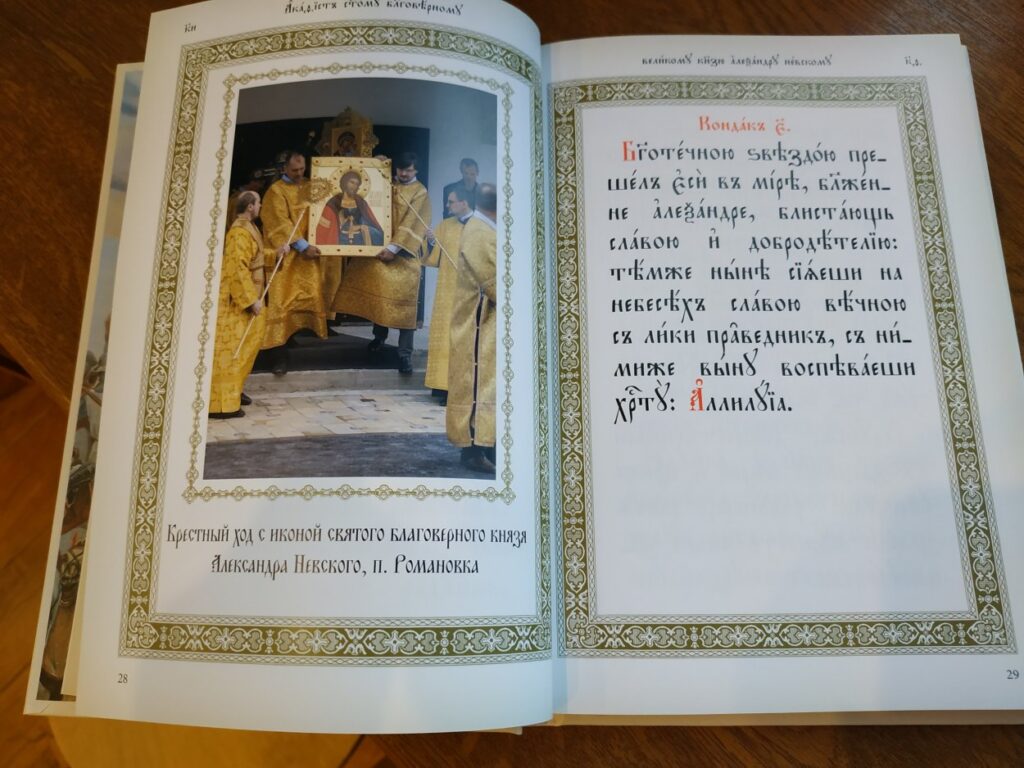 к҃и
А҆ка́ѳїстъ ст҃о́мꙋ бл҃говѣ́рномꙋ
Крестный ход с иконой святого благоверного князя
Александра Невского, п. Романовка
28
вели́комꙋ кнѧ́зю а҆леѯа́ндрꙋ не́вскомꙋ
Конда́къ є҃.
Бг҃оте́чною ѕвѣздо́ю пре_
ше́лъ є҆сѝ въ мі́рѣ, бл҃же́н_
не а҆леѯа́ндре, блиста́ющь
сла́вою и҆ добродѣ́телїю:
тѣ́мже ны́нѣ сїѧ́еши на
небесѣ́хъ сла́вою вѣ́чною
съ ли́ки пра́ведникъ, съ ни́_
миже вы́нꙋ воспѣва́еши
хрⷭ҇тꙋ̀: А҆ллилꙋ́їа.
29